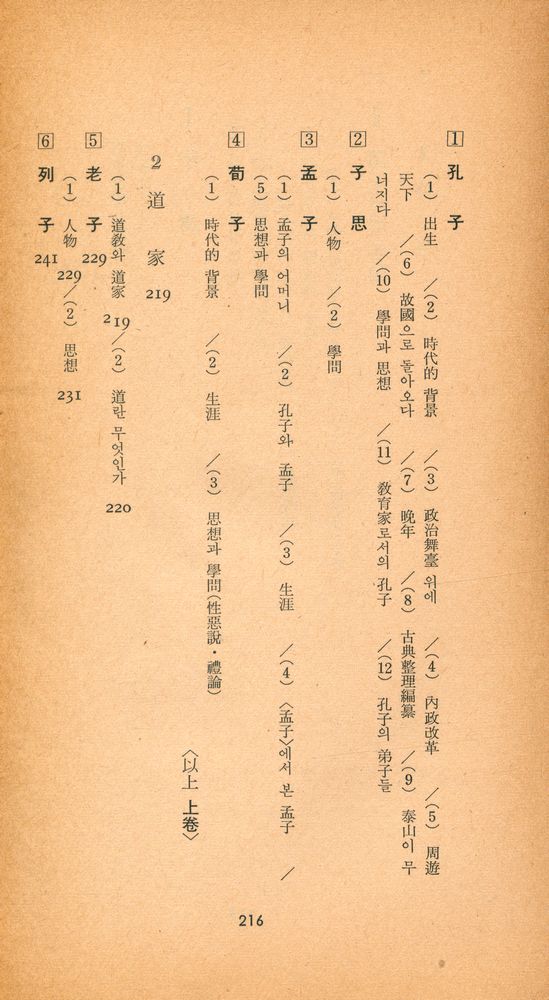 1 孔子
(1) 出生 /(2) 時代的 背景 /(3) 政治舞臺 위에 /(4) 內政改革 /(5) 周遊
天下 /(6) 故國으로 돌아오다 /(7) 晩年 /(8) 古典整理編纂 /(9) 泰山이 무
너지다 /(10) 學問과 思想 /(11) 敎育家로서의 孔子 /(12) 孔子의 弟子들
2 子思
(1) 人物 /(2) 學問
3 孟子
(1) 孟子의 어머니 /(2) 孔子와 孟子 /(3) 生涯 /(4) 〈孟子〉에서 본 孟子 /
(5) 思想과 學問
4 荀子
(1) 時代的 背景 /(2) 生涯 /(3) 思想과 學問(性惡說・禮論)
〈以上 上卷〉
2 道家 219
(1) 道敎와 道家 219/(2) 道란 무엇인가 220
5 老子 229
(1) 人物 229/(2) 思想 231
6 列子 241
216